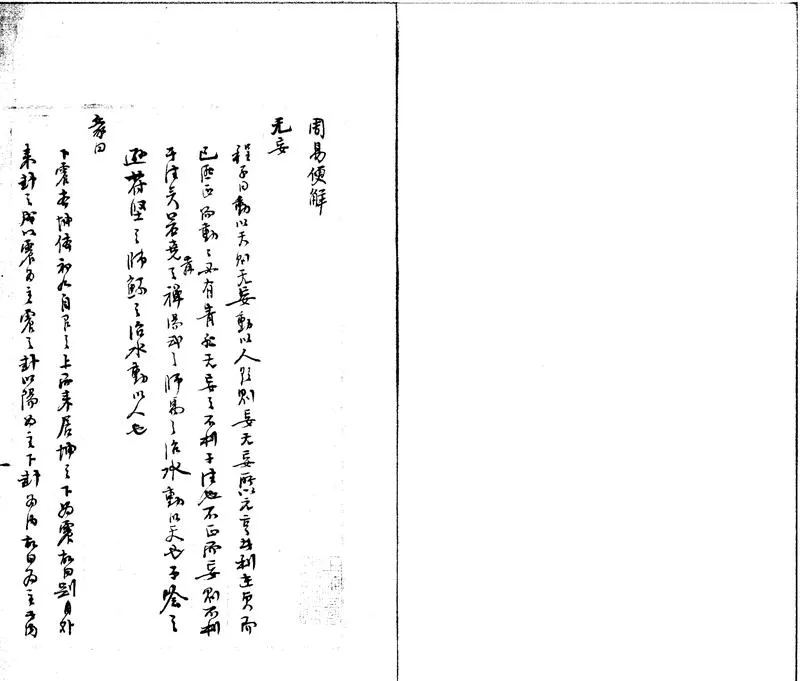 周易便解
无妄
程子曰動以天則无妄動以人欲則妄无妄所以元亨其利在貞而
已匪正而動之必有眚故无妄之不利于往也不正而妄則不利
于往矣若堯舜之禪湯武之師禹之治水動以天也子噲之
遜苻堅之師鯀之治水動以人也
彖曰
下震本坤體初九自乾之上而來居坤之下為震故曰剛自外
來卦之成以震為主震之卦以陽為主下卦為內故曰為主於內